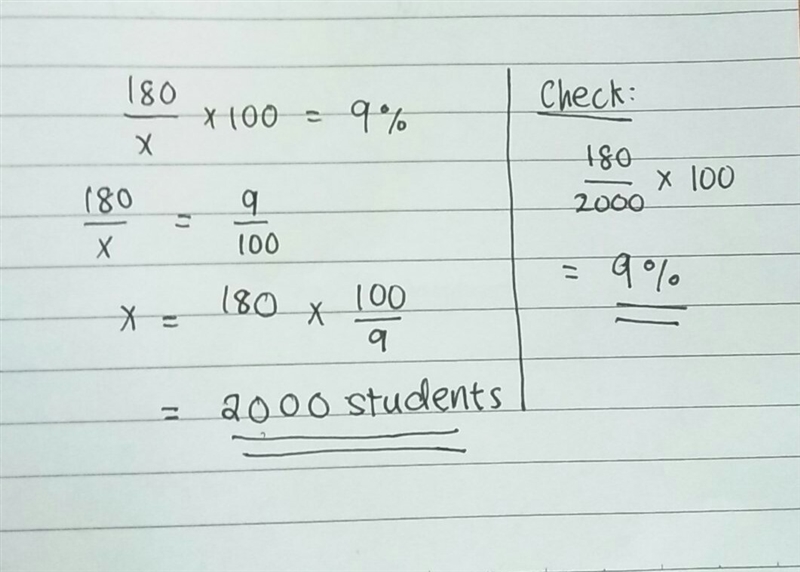 180/x × 100 = 9%
180/x = 9/100
x = 180 × 100/9
= 2000 students
Check:
180/2000 × 100
= 9%